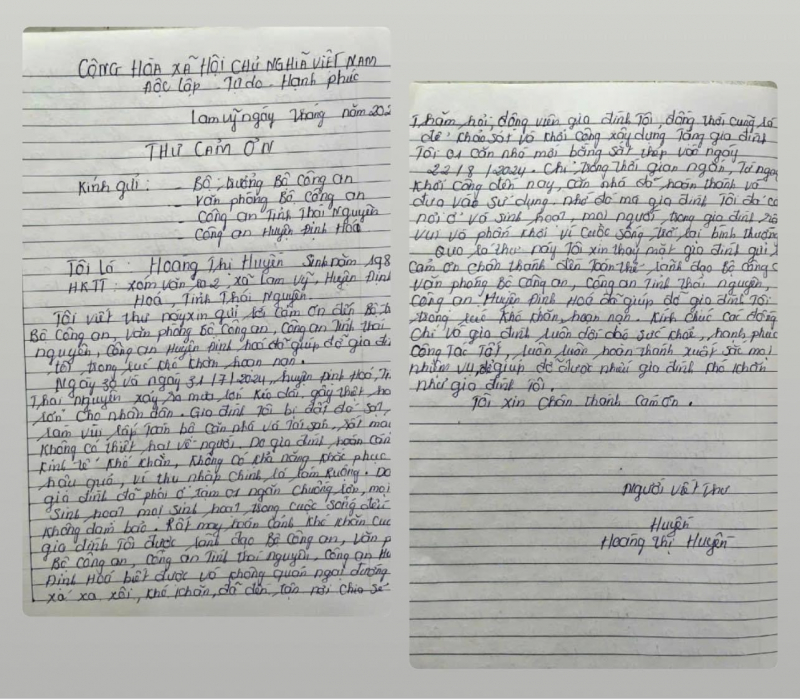 CỘNG HÒA XÃ HỘI CHỦ NGHĨA VIỆT NAM
Độc lập - Tự do - Hạnh phúc
Lam vỹ ngày tháng năm 202
THƯ CẢM ƠN
Kính gửi: - Bộ trưởng Bộ Công an
- Văn phòng Bộ Công an
- Công an Tỉnh Thái Nguyên
- Công an Huyện Định Hoá
Tôi là: Hoàng Thị Huyên Sinh năm 198
HKTT: xóm văn la 2, xã Lam vỹ, Huyện Định
Hoá, Tỉnh Thái Nguyên.
Tôi viết thư này xin gửi lời cảm ơn đến Bộ
Bộ Công an, văn phòng Bộ Công an, Công an Tỉnh Thái
nguyên, Công an Huyện Định hoá đã giúp đỡ gia đì
tôi trong lúc khó khăn hoạn nạn.
Ngày 30 và ngày 31/7/2024, huyện Định Hoá, T
Thái nguyên xảy ra mưa lớn kéo dài, gây thiệt hạ
lớn cho nhân dân. Gia đình tôi bị đất đá sạt,
làm vùi lấp toàn bộ căn nhà và tài sản, rất may
không có thiệt hại về người. Do gia đình hoàn cản
kinh tế khó khăn, không có khả năng khắc phục
hậu quả, vì thu nhập chính là làm ruộng. Do
gia đình đã phải ở tạm 01 ngăn chuồng lợn, mọi
sinh hoạt mọi sinh hoạt trong cuộc sống đều
không đảm bảo. Rất may hoàn cảnh khó khăn của
gia đình Tôi được lãnh đạo Bộ Công an, văn p
Bộ Công an, Công an Tỉnh Thái nguyên, Công an Hu
Định Hoá biết được và không quản ngại đường
xá xa xôi, khó khăn, đã đến tận nơi chia sẻ
Thăm hỏi, động viên gia đình Tôi, đồng thời cũng là
để khảo sát và khởi công xây dựng Tặng gia đình
Tôi 01 căn nhà mới bằng sắt thép vào ngày
22/8/2024. Chỉ trong thời gian ngắn, Từ ngày
khởi công đến nay, căn nhà đã hoàn thành và
đưa vào sử dụng. nhờ đó mà gia đình Tôi đã có
nơi ở và sinh hoạt, mọi người trong gia đình
vui và phấn khởi vì cuộc sống trở lại bình thường
Qua lá thư này Tôi xin thay mặt gia đình gửi l
cảm ơn chân thành đến Toàn thể lãnh đạo Bộ công
văn phòng Bộ Công an, Công an Tỉnh Thái nguyên,
Công an Huyện Định Hoá đã giúp đỡ gia đình Tôi
trong lúc khó khăn, hoạn nạn. Kính chúc các đồng
chí và gia đình luôn dồi dào sức khoẻ, hạnh phúc
Công Tác Tốt, luôn luôn hoàn thành xuất sắc mọi
nhiệm vụ, để giúp đỡ được nhiều gia đình khó khăn
như gia đình Tôi.
Tôi xin chân thành cảm ơn.
Người viết thư
Huyên
Hoàng Thị Huyên